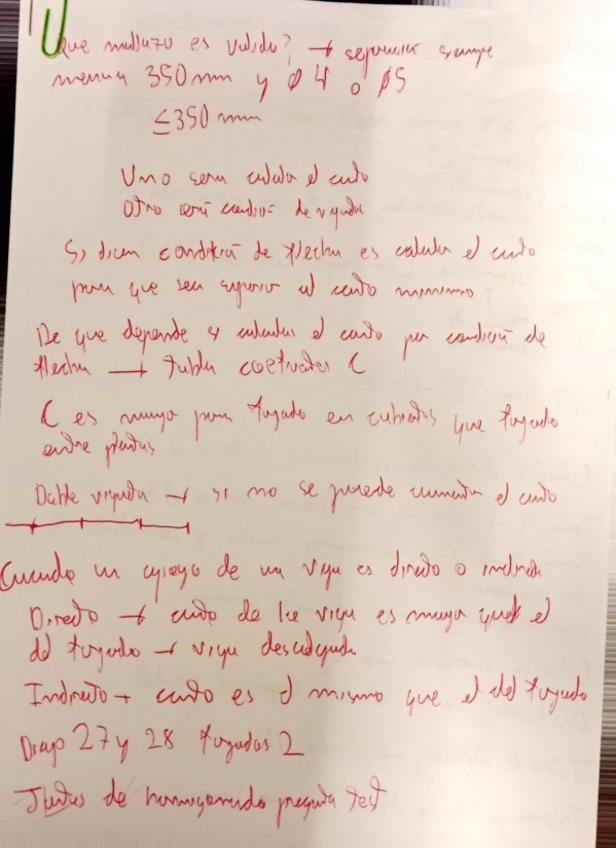 Que mallazo es valido? → separación siempre
menor a 350mm y ø 4 o ø5
≤350 mm
Uno sera calcular el canto
Otro será condición de vigueta
Si dicen condición de flecha es calcular el canto
para que sea superior al canto minimo
De que depende si calculas el canto por condición de
flecha → tabla coeficientes C
C es mayor para forjado en cubiertas que forjado
entre plantas
Doble vigueta → si no se puede aumentar el canto
Cuando un apoyo de una viga es directo o indirecto
Directo → canto de la viga es mayor que el
del forjado → viga descolgada
Indirecto → canto es el mismo que el del forjado
Diap 27 y 28 forjados 2
Juntas de hormigonado pregunta test